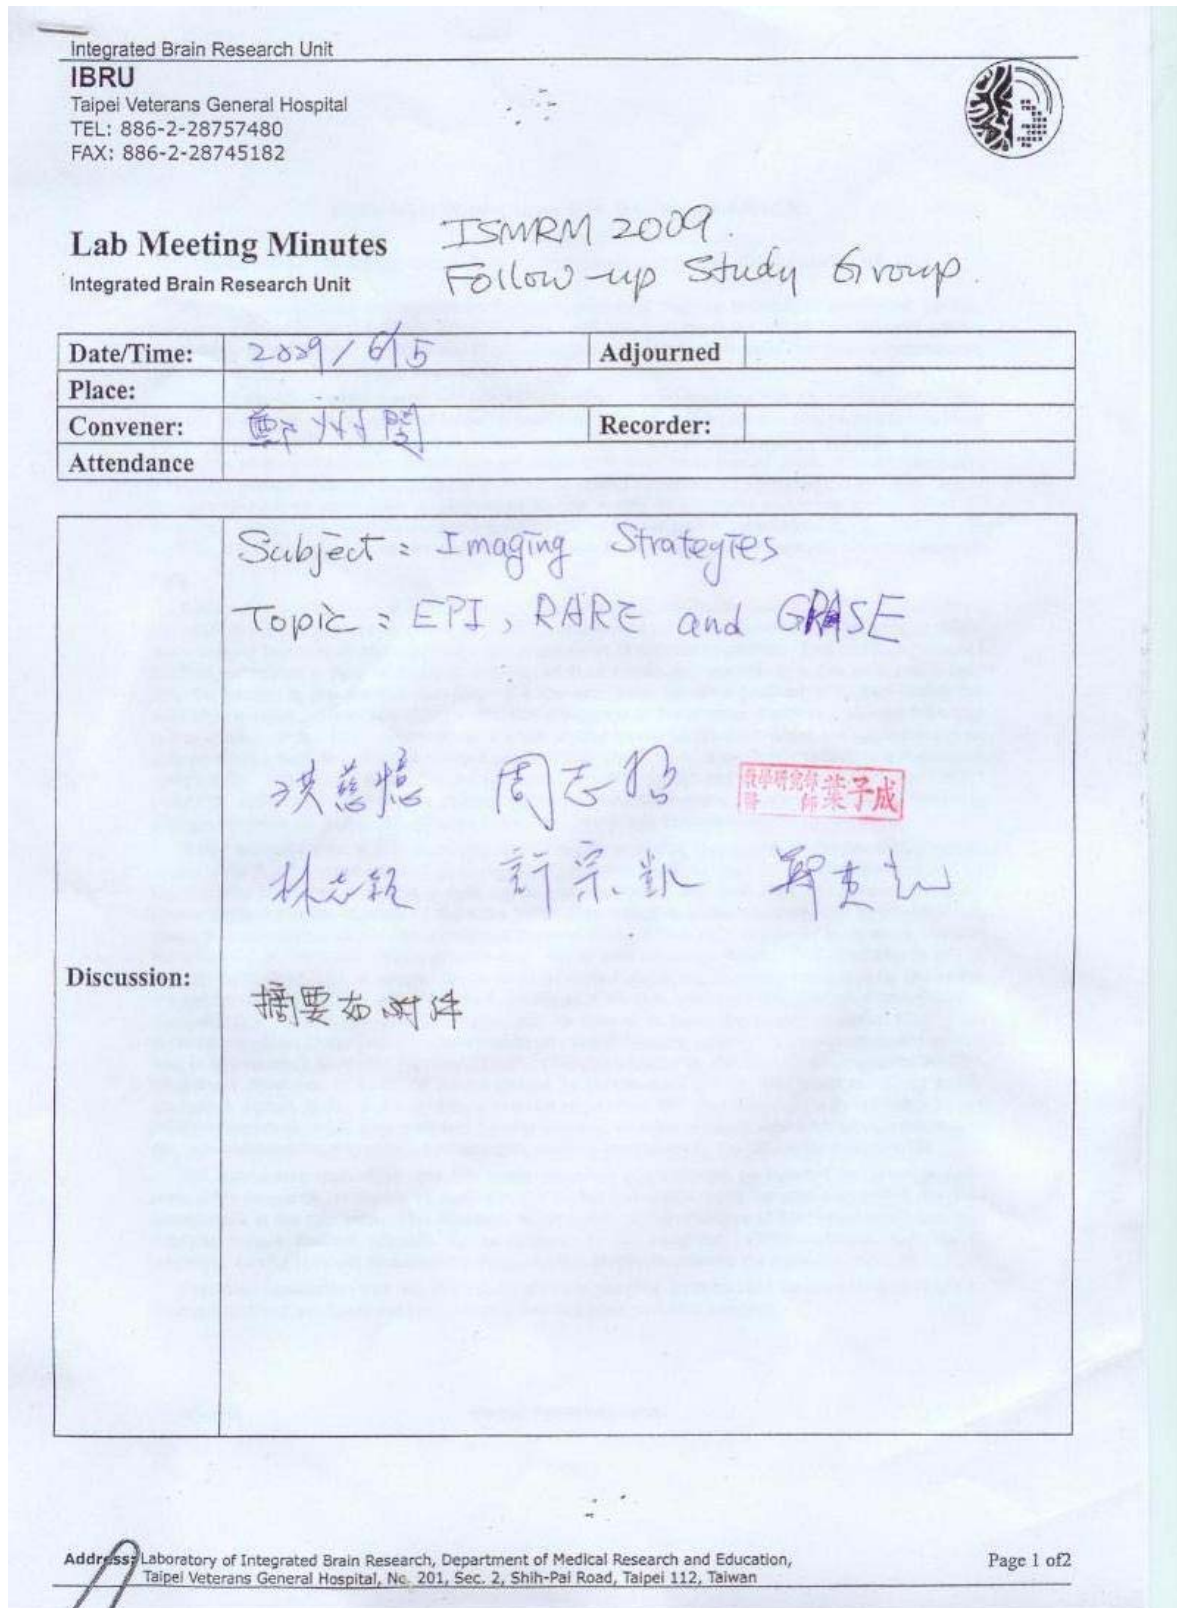 Integrated Brain Research Unit
IBRU
Taipei Veterans General Hospital
TEL: 886-2-28757480
FAX: 886-2-28745182
Lab Meeting Minutes
ISMRM 2009.
Integrated Brain Research Unit
Follow-up Study Group.
Date/Time: 2009/6/15 Adjourned
Place:
Convener: 鄭州閔 Recorder:
Attendance
Subject: Imaging Strategies
Topic: EPI, RARE and GRASE
洪慈憶 周志 葉子成
林志 許宗凱 鄭
Discussion:
摘要如附件
Address: Laboratory of Integrated Brain Research, Department of Medical Research and Education,
Taipei Veterans General Hospital, No. 201, Sec. 2, Shih-Pai Road, Taipei 112, Taiwan
Page 1 of2